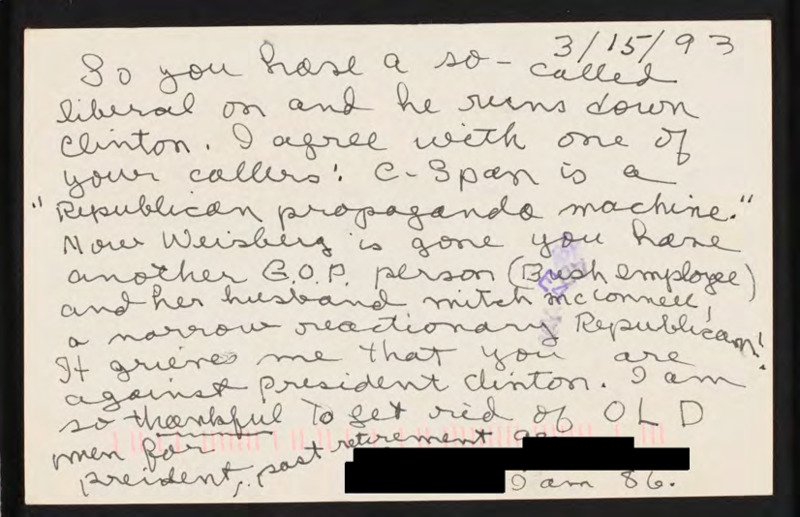 3/15/93
So you have a so-called
liberal on and he runs down
Clinton. I agree with one of
your callers: C-Span is a
"Republican propaganda machine."
Now Weisberg is gone you have
another G.O.P. person (Bush employee)
and her husband Mitch McConnell,
a narrow reactionary Republican!
It grieves me that you are
against president Clinton. I am
so thankful to get rid of OLD
men for
preident, past retirement
I am 86.